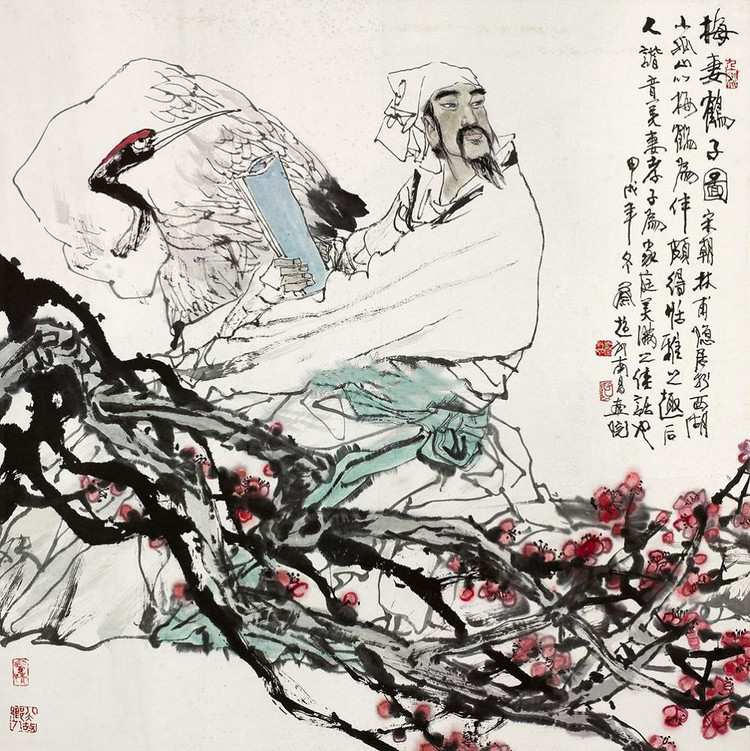 梅妻鶴子圖 宋朝林甫隐居於西湖
小孤山以梅鶴為伴頗得恬雅之趣后
人諧音美妻孝子為家庭美滿之佳話也
甲戌年冬蔡超於南昌画院